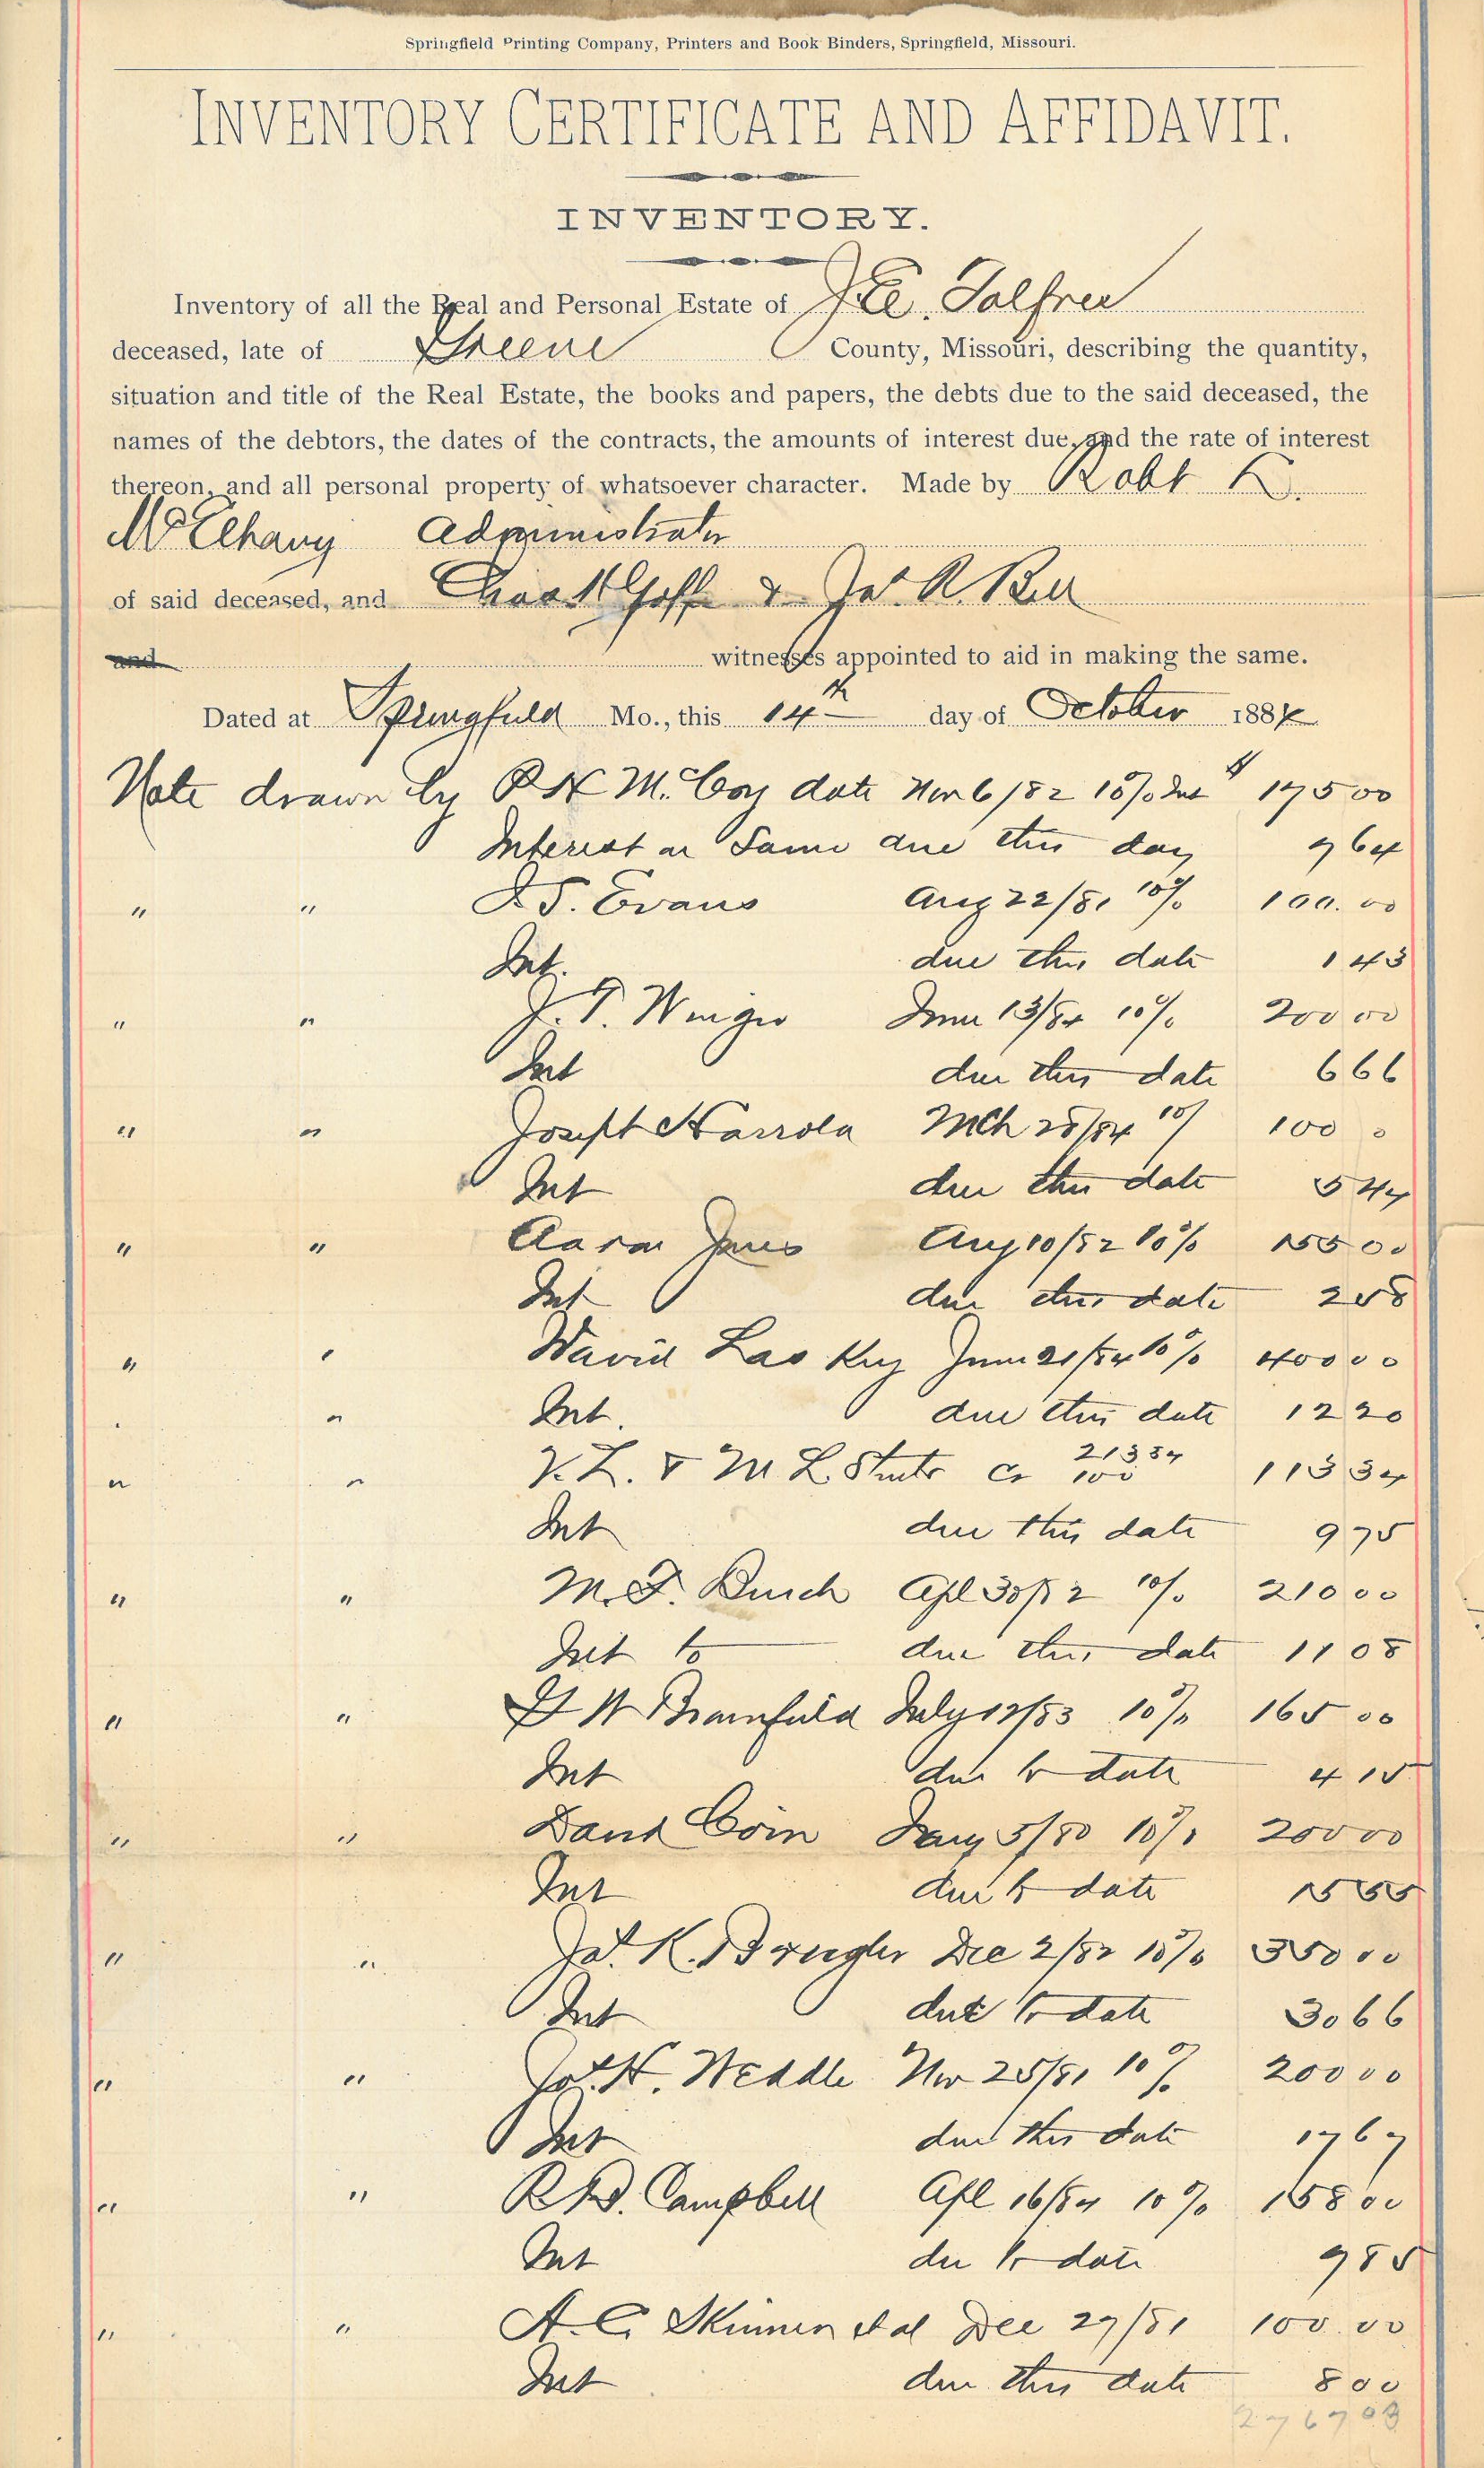 Springfield Printing Company, Printers and Book Binders, Springfield, Missouri.
INVENTORY CERTIFICATE AND AFFIDAVIT.
INVENTORY.
Inventory of all the Real and Personal Estate of J. E. Tolfree
deceased, late of Greene County, Missouri, describing the quantity,
situation and title of the Real Estate, the books and papers, the debts due to the said deceased, the
names of the debtors, the dates of the contracts, the amounts of interest due, and the rate of interest
thereon, and all personal property of whatsoever character. Made by Robt K.
McElhany Administrator
of said deceased, and Chas H Goffe & Jas. R. Bell
and witnesses appointed to aid in making the same.
Dated at Springfield Mo., this 14th day of October 1884
Note drawn by R H McCoy date Nov 6/82 10% Int $ 175 00
Interest on Same due this day 9 64
" " Evans Aug 22/81 10% 100.00
Int. due this date 1 43
" " J. T. Wingo June 13/84 10% 200 00
Int due this date 6 66
" " Joseph Harrold Mch 28/84 10% 100 0
Int due this date 5 44
" " Aaron Jones Aug 10/82 10% 155 00
Int due this date 2 58
" " David Laskey June 21/84 10% 400 00
Int. due this date 12 20
" " & M L Cr 213 34 100 113 34
Int due this date 9 75
" " M. F. Burch Apl 30/82 10% 210 00
Int to due this date 11 08
" " G W Bromfield July 12/83 10% 165 00
Int due to date 4 15
" " David Coin Jany 5/80 10% 200 00
Int due to date 15 55
" " Jas. K. Dec 2/82 10% 350 00
Int due to date 30 66
" " Jas. H. Weddle Nov 25/81 10% 200 00
Int due this date 17 67
" " R D. Campbell Apl 16/84 10% 158 00
Int due to date 9 85
" " A. C. Skinner et al Dec 27/81 100.00
Int due this date 8 00
2767 03